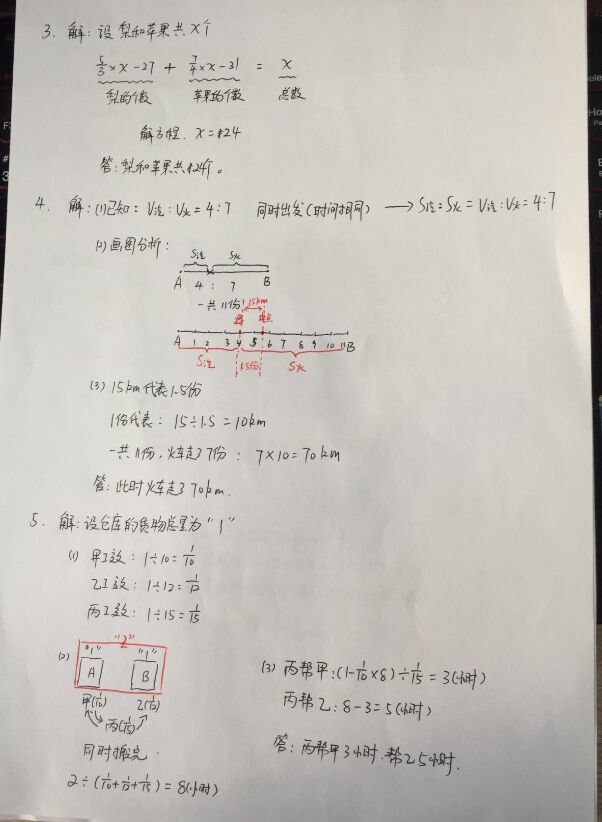 3. 解：设梨和苹果共x个
5/3 × x - 27 + 7/4 × x - 31 = x
梨的个数 苹果的个数 总数
解方程. x=24
答：梨和苹果共24个。
4. 解：(1)已知：V汽：V火=4:7 同时出发(时间相同) → S汽：S火=V汽：V火=4:7
(2)画图分析：
S汽 S火
A 4 : 7 B
一共11份 15km
中点
A 1 2 3 4 5 6 7 8 9 10 11 B
S汽 1.5份 S火
(3) 15km代表1.5份
1份代表：15÷1.5=10km
一共11份，火车走了7份：7×10=70km
答：此时火车走了70km.
5. 解：设仓库的货物总量为"1"
(1) 甲工效：1÷10=1/10
乙工效：1÷12=1/12
丙工效：1÷15=1/15
"2"
(2) "1" "1"
A B
甲(1/10) 乙(1/12)
丙(1/15)
同时搬完.
2÷(1/10+1/12+1/15)=8(小时)
(3) 丙帮甲：(1-1/10×8)÷1/15=3(小时)
丙帮乙：8-3=5(小时)
答：丙帮甲3小时.帮乙5小时.